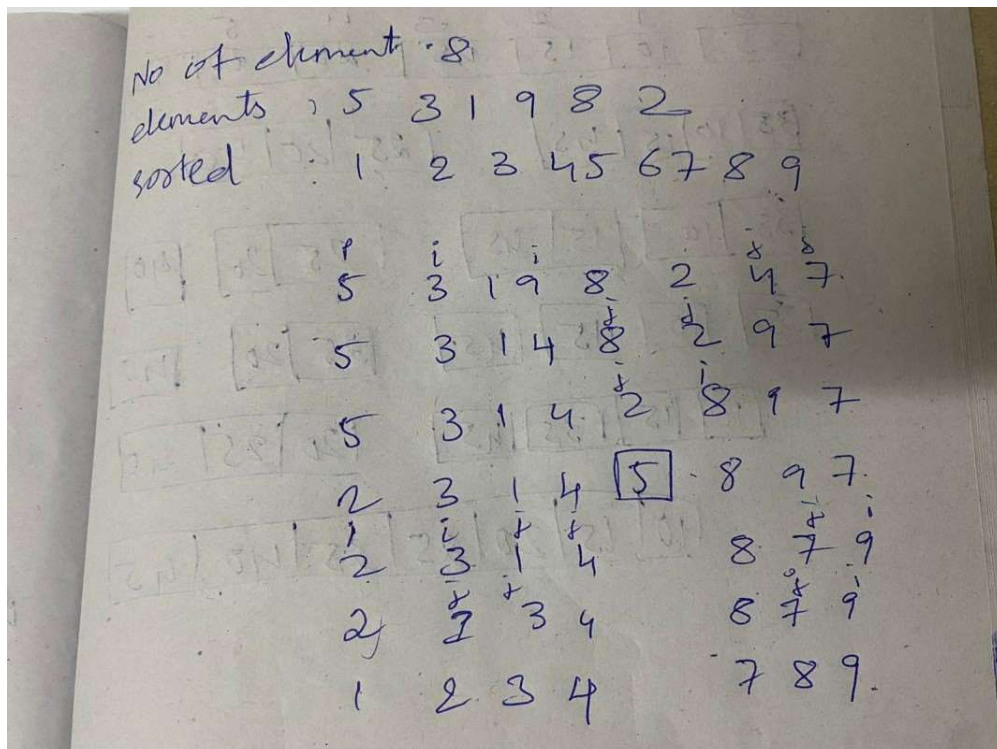 No of element . 8
elements : 5 3 1 9 8 2
sorted 1 2 3 4 5 6 7 8 9
P i i j j
5 3 1 9 8 2 4 7
j i
5 3 1 4 8 2 9 7
j i
5 3 1 4 2 8 9 7
2 3 1 4 5 8 9 7
i i j j j i
2 3 1 4 8 7 9
j j j i
2 1 3 4 8 7 9
1 2 3 4 7 8 9